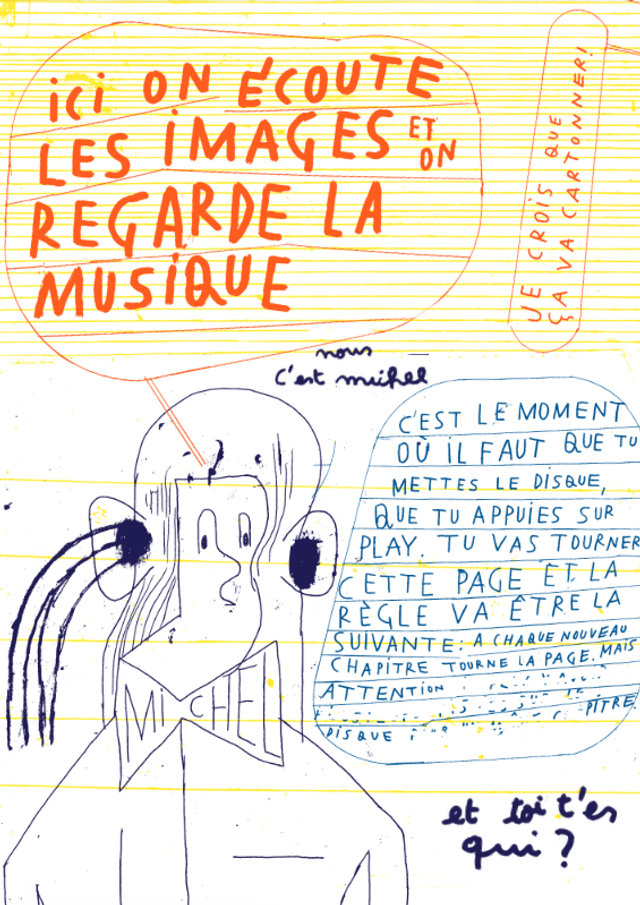 ici ON ÉCOUTE
LES IMAGES ET ON
REGARDE LA
MUSIQUE
JE CROIS QUE
ÇA VA CARTONNER!
nous
c'est michel
C'EST LE MOMENT
OÙ IL FAUT QUE TU
METTES LE DISQUE,
QUE TU APPUIES SUR
PLAY. TU VAS TOURNER
CETTE PAGE ET LA
RÈGLE VA ÊTRE LA
SUIVANTE: A CHAQUE NOUVEAU
CHAPITRE TOURNE LA PAGE. MAIS
ATTENTION
PITRE.
DISQUE
MiCHEL
et toi t'es
qui ?